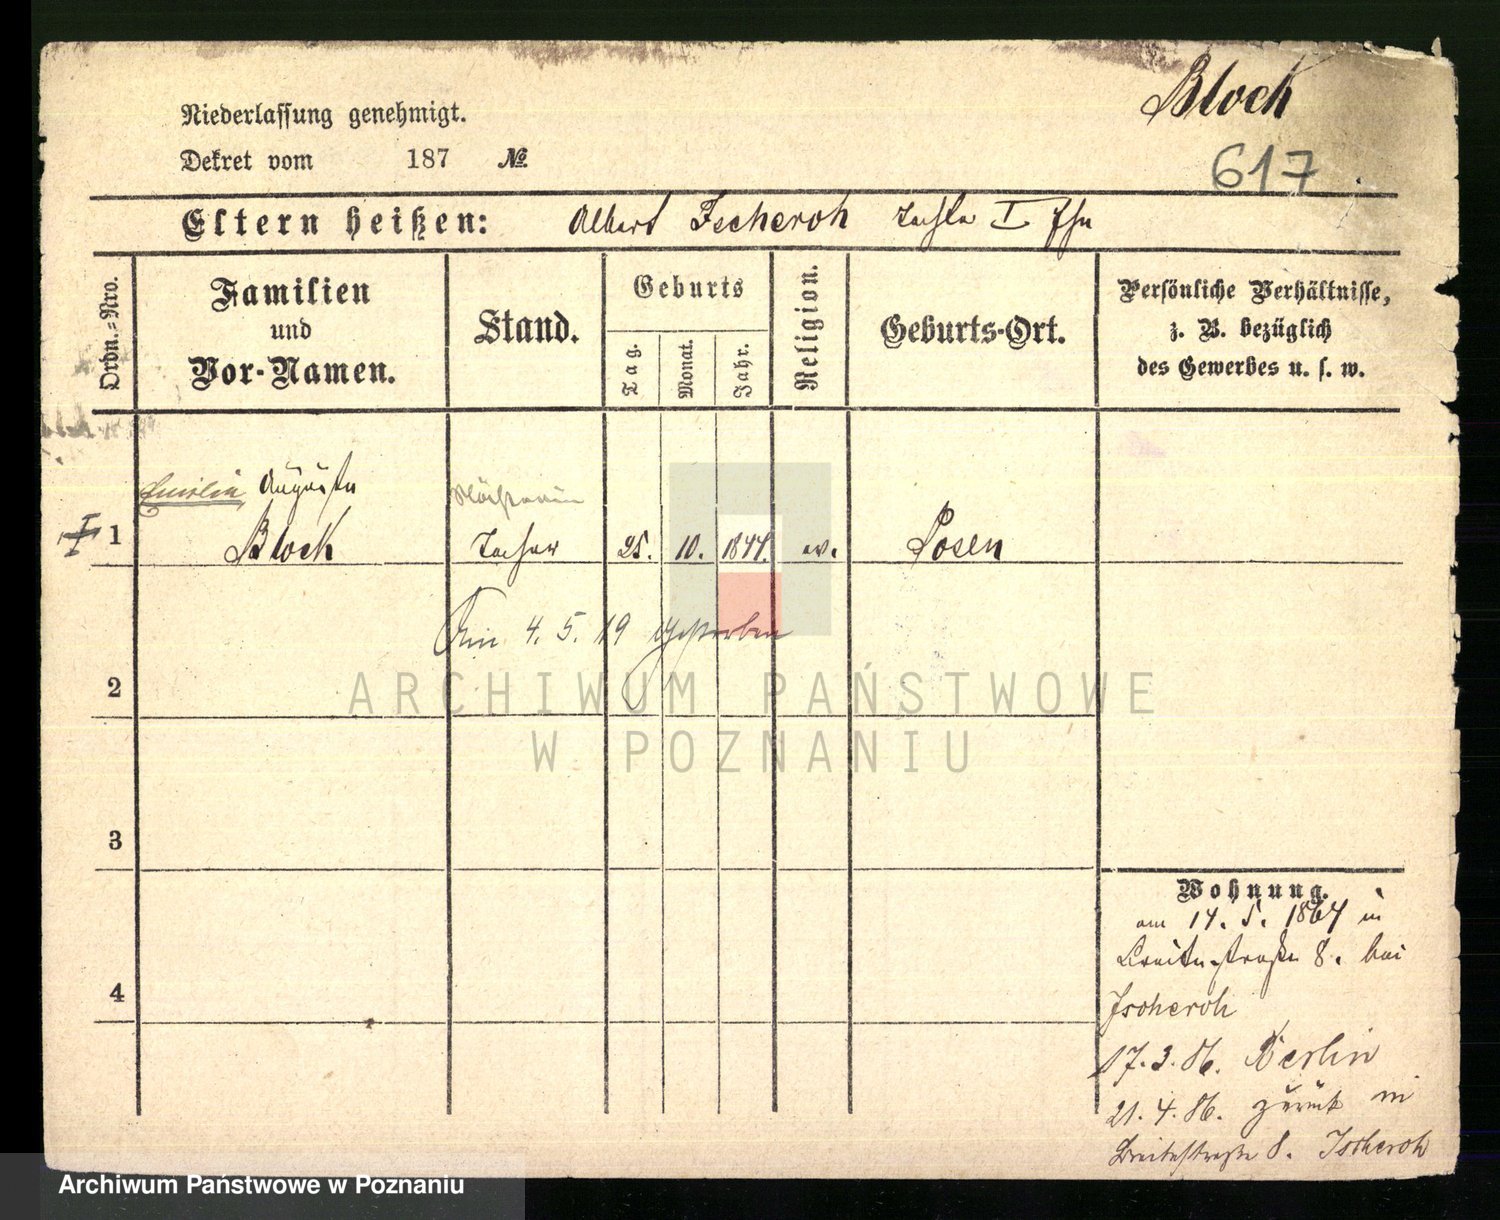 Bloch
Niederlassung genehmigt.
Dekret vom 187 №
617
Eltern heißen: Albert Tscheroh I
Ordn.-Nro.
Familien
und
Vor-Namen.
Stand.
Geburts
Tag.
Monat.
Jahr.
Religion.
Geburts-Ort.
Persönliche Verhältnisse,
z. B. bezüglich
des Gewerbes u. s. w.
Emilie Auguste
1 Bloch 25. 10. 1844. ev. Posen
Am 4. 5. 19 gestorben
2
3
4
Wohnung.
am 14. 5. 1864 in
Breitestraße 8. bei
Tscheroh
17. 3. 86. Berlin
21. 4. 86. zurück in
Breitestraße 8. Tscheroh
ARCHIWUM PAŃSTWOWE
W POZNANIU
Archiwum Państwowe w Poznaniu